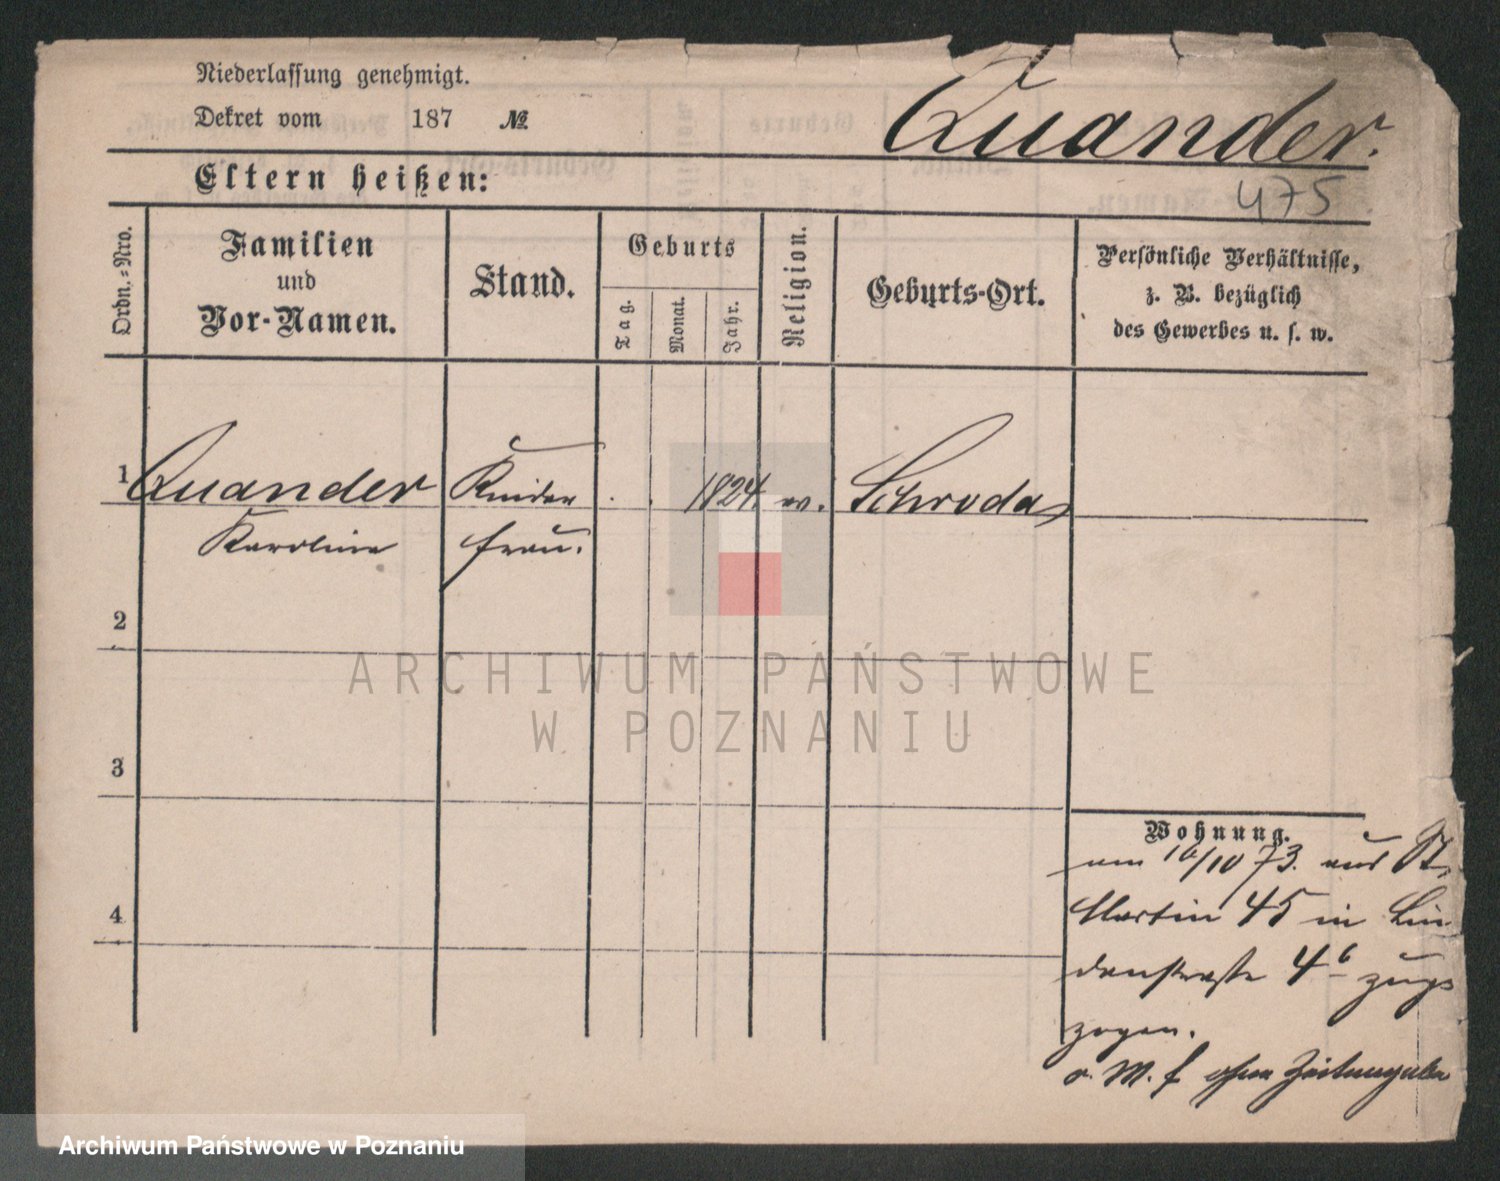 Niederlassung genehmigt.
Dekret vom 187 №
Quander.
475
Eltern heißen:
Ordn.-Nro.
Familien
und
Vor-Namen.
Stand.
Geburts
Tag.
Monat.
Jahr.
Religion.
Geburts-Ort.
Persönliche Verhältnisse,
z. B. bezüglich
des Gewerbes u. s. w.
1 Quander Kinder 1824. ev. Schroda
Karoline frau.
2
3
4
Wohnung.
am 16/10 73. aus St.
Martin 45 in Lin
denstraße 4b zuge
zogen.
o. M. f ohne Zeitangabe
ARCHIWUM PAŃSTWOWE
W POZNANIU
Archiwum Państwowe w Poznaniu